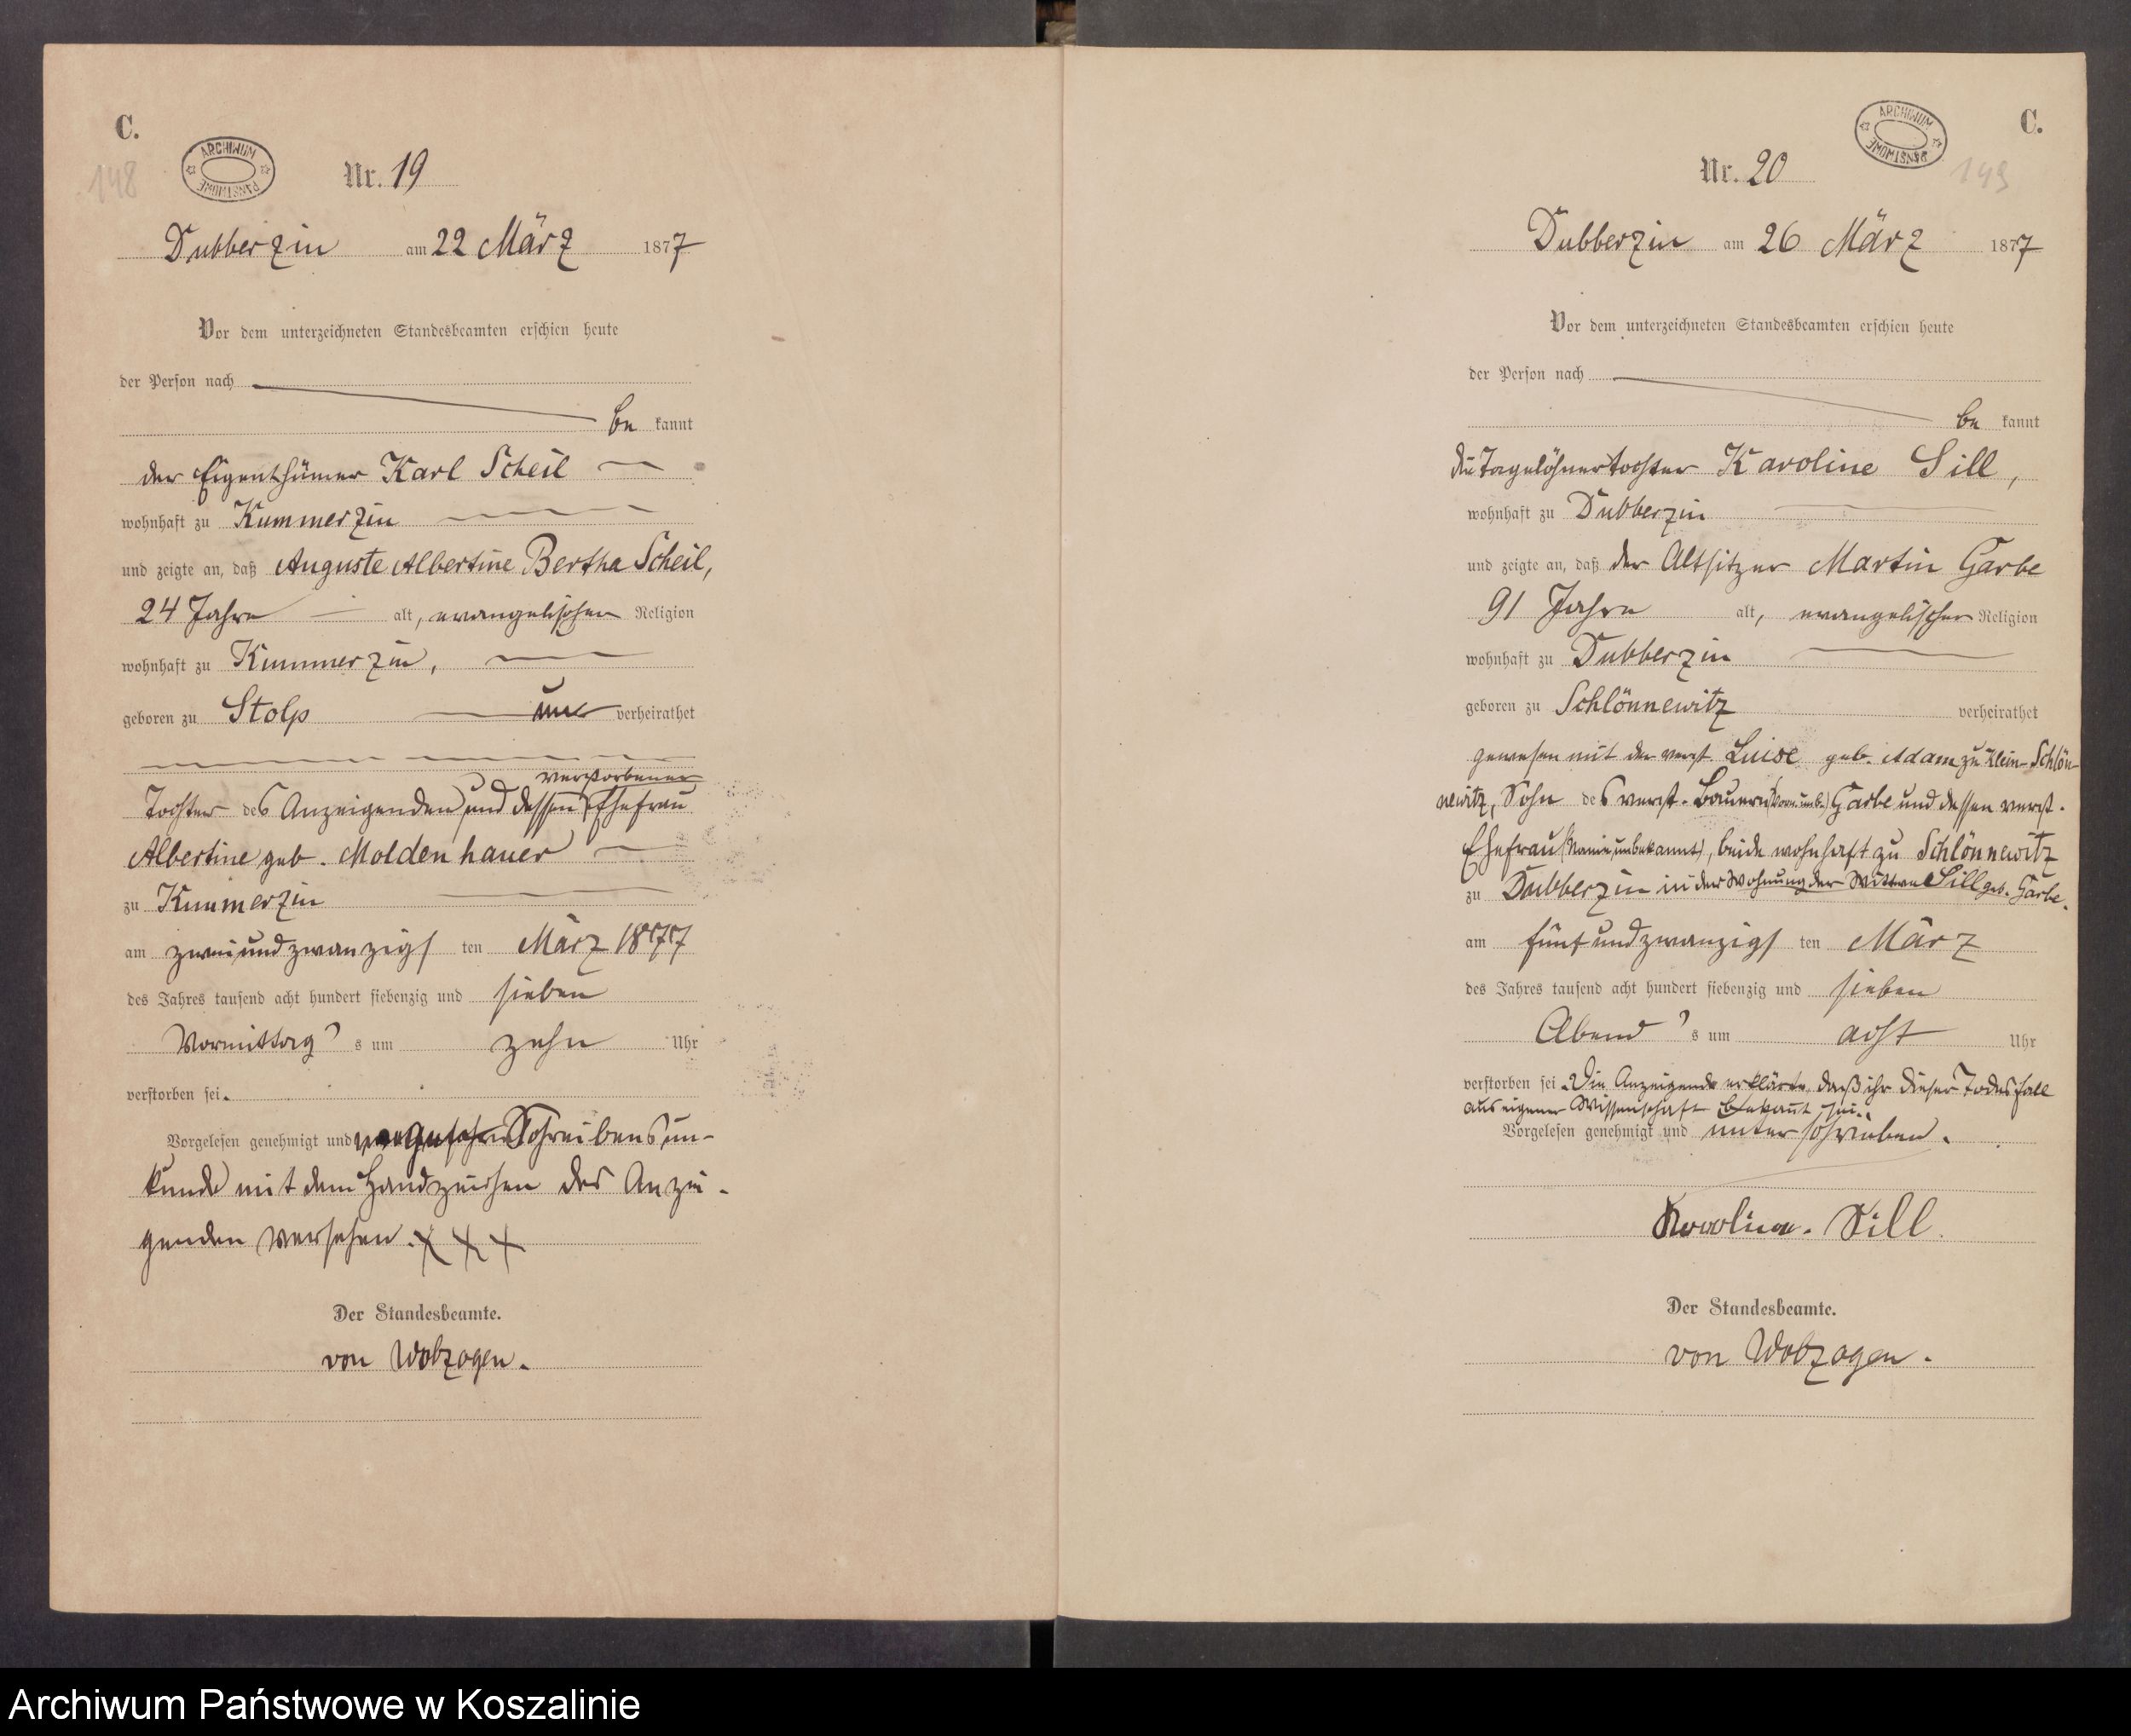 C.
148
ARCHIWUM PAŃSTWOWE
Nr. 19
Dubberzin am 22 März 1877
Vor dem unterzeichneten Standesbeamten erschien heute
der Person nach
be kannt
der Eigenthümer Karl Scheil
wohnhaft zu Kummerzin
und zeigte an, daß Auguste Albertine Bertha Scheil,
24 Jahre alt, evangelischer Religion
wohnhaft zu Kummerzin,
geboren zu Stolp un verheirathet
verstorbener
Tochter des Anzeigenden und dessen Ehefrau
Albertine geb. Moldenhauer
zu Kummerzin
am zweiundzwanzigs ten März 1877
des Jahres tausend acht hundert siebenzig und sieben
Vormittag s um zehn Uhr
verstorben sei.
Vorgelesen genehmigt und wegen Schreibensun-
kunde mit dem Handzeichen des Anzei-
genden versehen. XXX
Der Standesbeamte.
von Wobzogen.
C.
149
ARCHIWUM PAŃSTWOWE
Nr. 20
Dubberzin am 26 März 1877
Vor dem unterzeichneten Standesbeamten erschien heute
der Person nach
be kannt
die Tagelöhnertochter Karoline Sill,
wohnhaft zu Dubberzin
und zeigte an, daß der Altsitzer Martin Garbe
91 Jahre alt, evangelischer Religion
wohnhaft zu Dubberzin
geboren zu Schlönnewitz verheirathet
gewesen mit der verst. Luise geb. Adam zu Klein-Schlön-
newitz, Sohn des verst. Bauern (Vorn. unb.) Garbe und dessen verst.
Ehefrau (Name unbekannt), beide wohnhaft zu Schlönnewitz
zu Dubberzin in der Wohnung der Wittwe Sill geb. Garbe.
am fünfundzwanzigs ten März
des Jahres tausend acht hundert siebenzig und sieben
Abend s um acht Uhr
verstorben sei. Die Anzeigende erklärte, daß ihr dieser Todesfall
aus eigener Wissenschaft bekannt sei.
Vorgelesen genehmigt und unterschrieben.
Karoline. Sill.
Der Standesbeamte.
von Wobzogen.
Archiwum Państwowe w Koszalinie